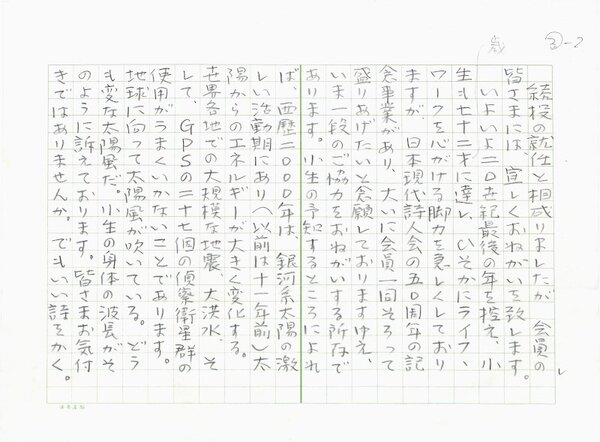 ③-2
歳
続投の就任と相成りましたが 会員の
皆さまには 宜しくおねがいを致します。
いよいよ二〇世紀最後の年を控え、小
生も七十二才に達し、ひそかにライフ、
ワークを心がける脚力を急しくしており
ますが、日本現代詩人会の五〇周年の記
念事業があり、大いに会員一同そろって
盛りあげたいと念願しておりますゆえ、
いま一段のご協力をおねがいする所存で
あります。小生の予知するところによれ
ば、西歴二〇〇〇年は、銀河系太陽の激
しい活動期にあり(以前は十一年前)太
陽からのエネルギーが大きく変化する。
世界各地での大規模な地震 大洪水、そ
して、GPSの二十七個の偵察衛星群の
使用がうまくいかないことであります。
地球に向って太陽風が吹いている。どう
も変な太陽風だ。小生の身体の波長がそ
のように訴えております。皆さまお気付
きではありませんか。でもいい詩をかく。